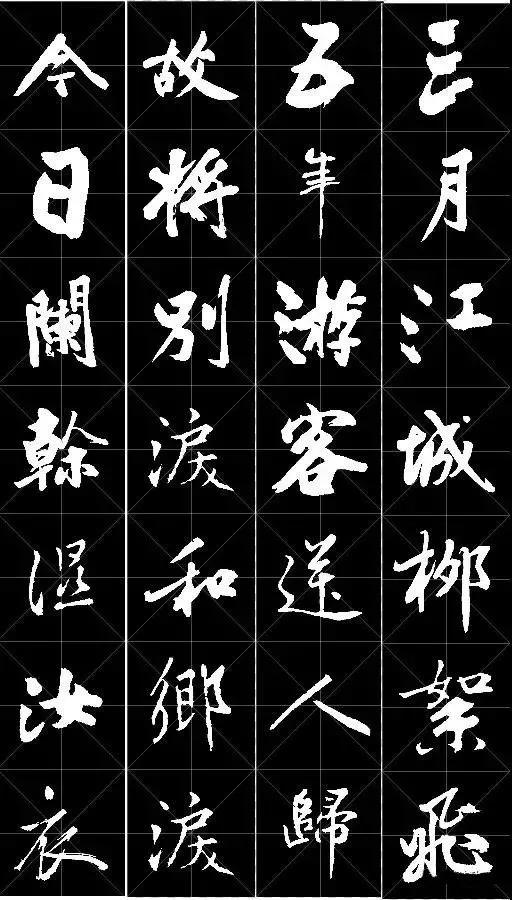 三月江城柳絮飛
五年游客送人歸
故將別淚和鄉淚
今日闌幹濕汝衣